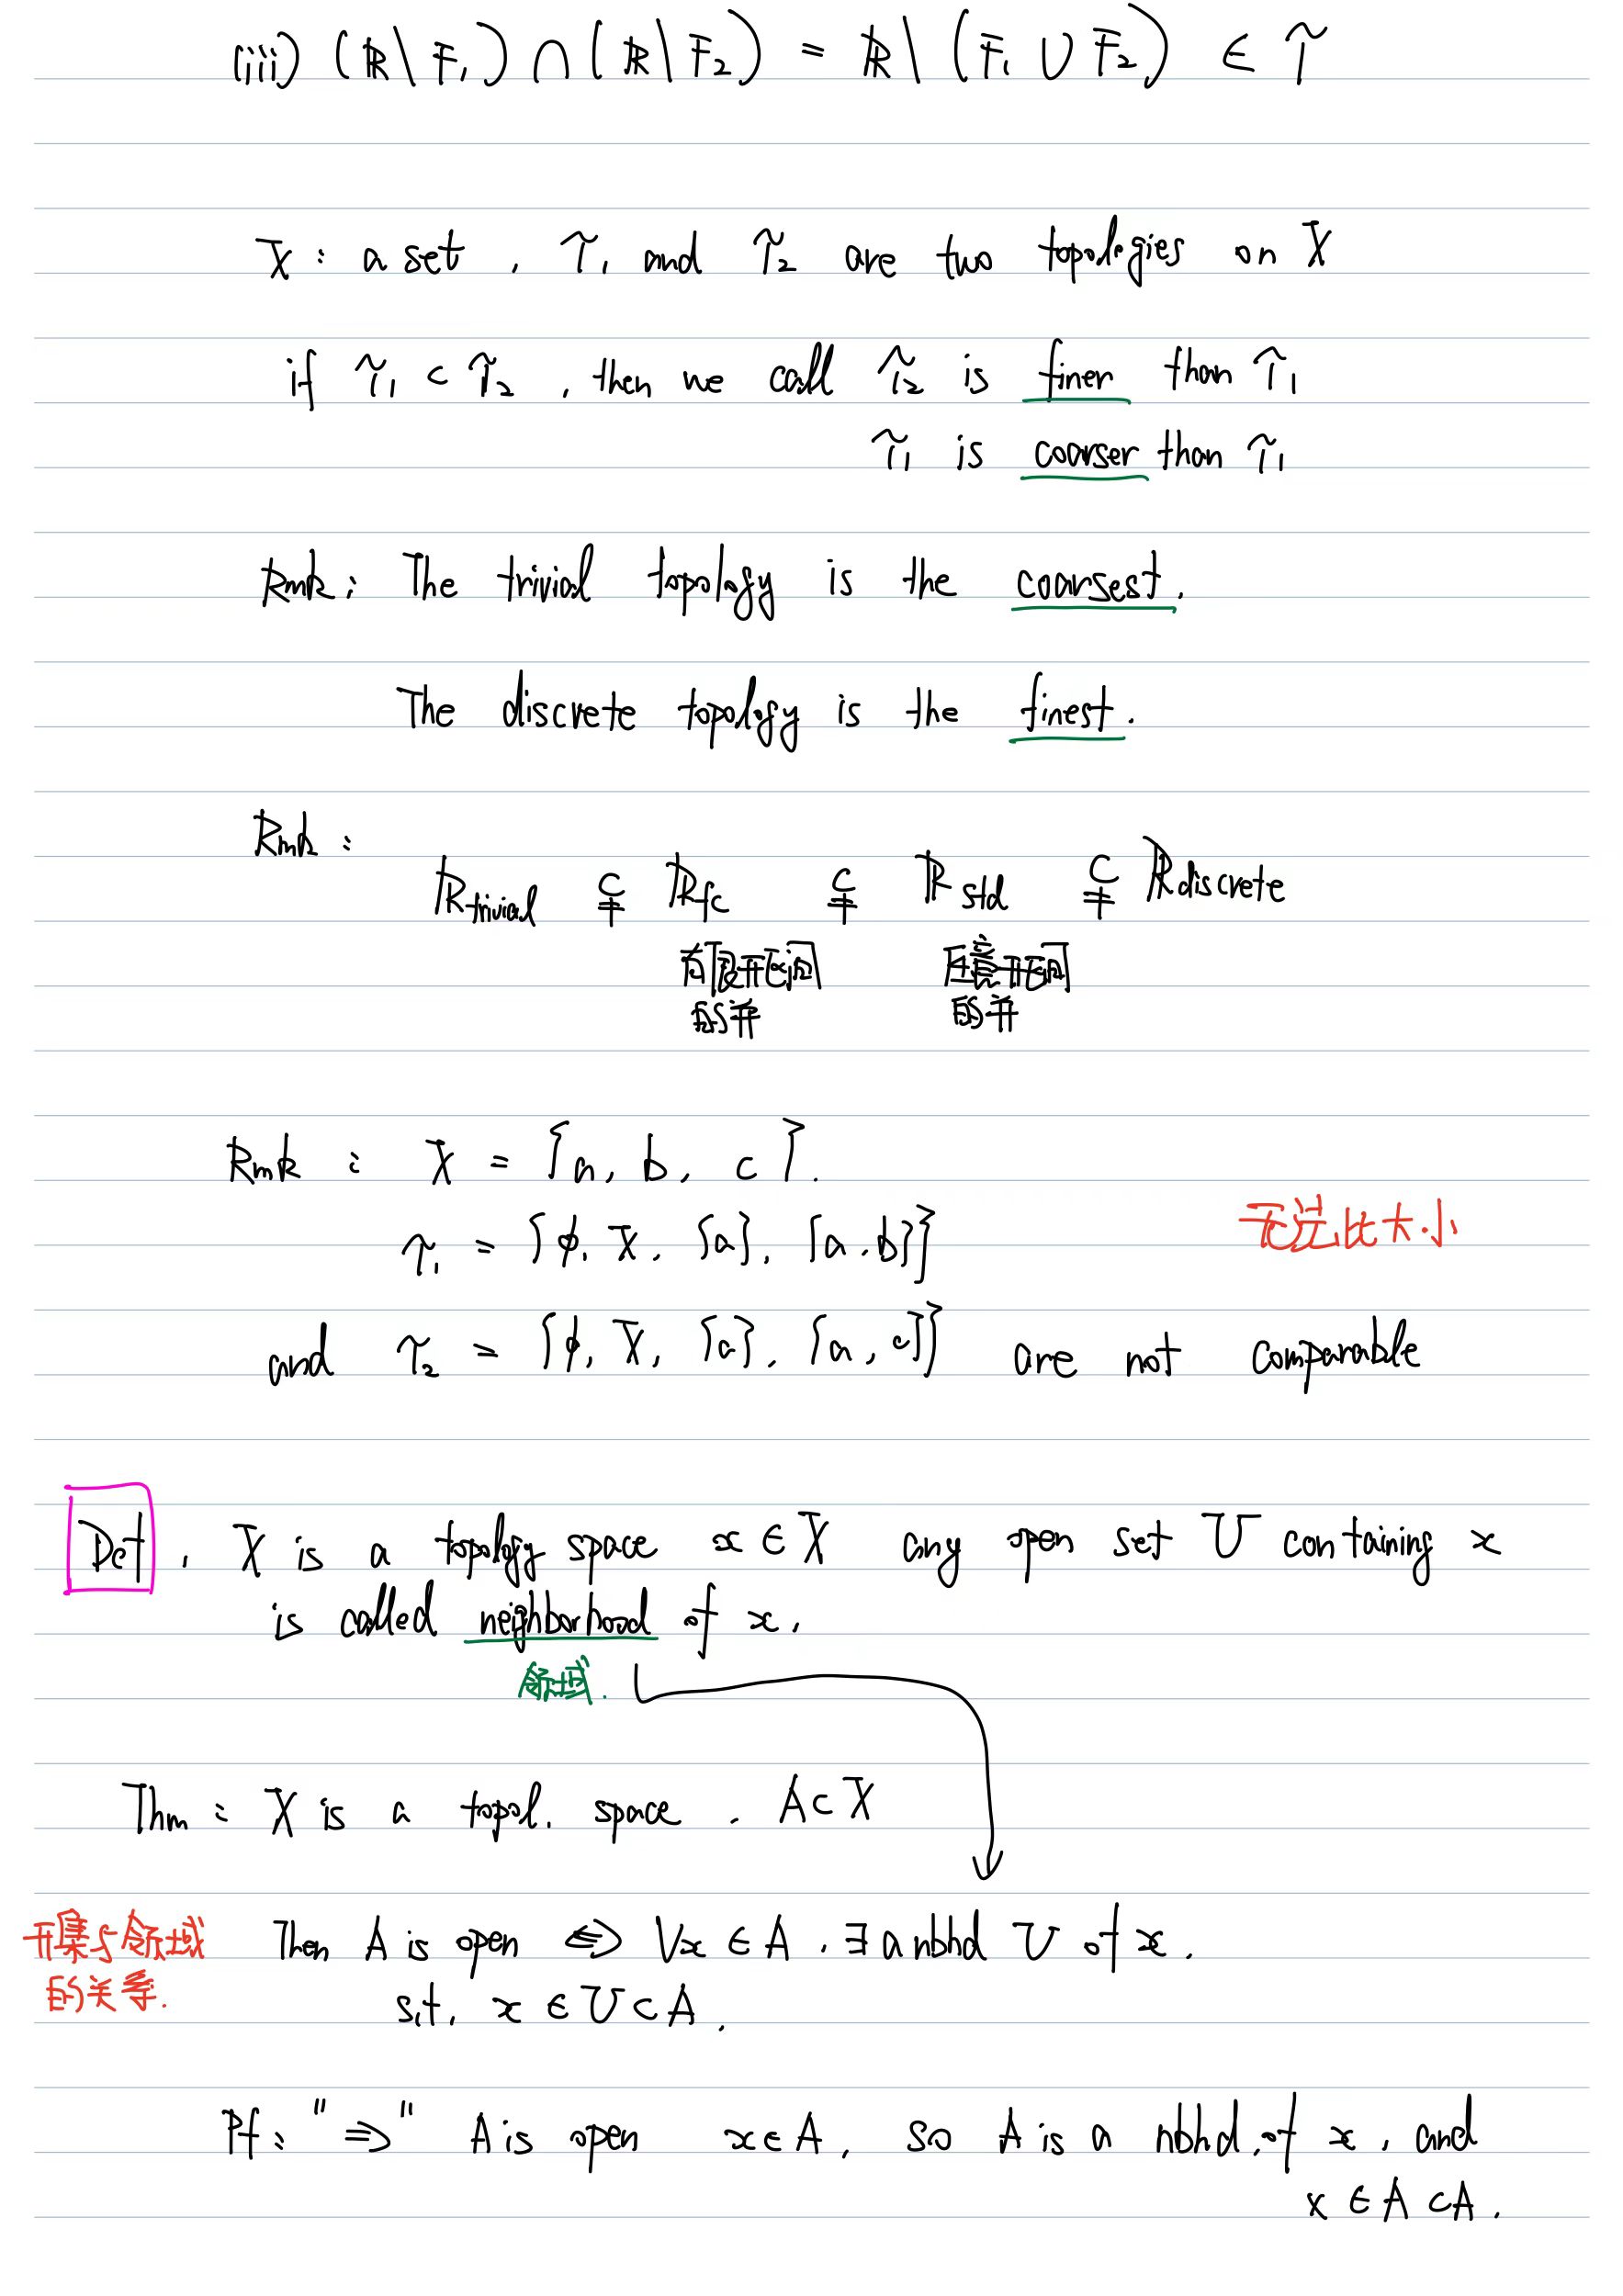 (iii) (ℝ\F₁) ∩ (ℝ\F₂) = ℝ\(F₁ ∪ F₂) ∈ τ
X : a set , τ₁ and τ₂ are two topologies on X
if τ₁ ⊂ τ₂ , then we call τ₂ is finer than τ₁
τ₁ is coarser than τ₁
Rmk : The trivial topology is the coarsest.
The discrete topology is the finest.
Rmk :
ℝtrivial ⊊ ℝfc ⊊ ℝstd ⊊ ℝdiscrete
有限开区间 任意开区间
的并 的并
Rmk : X = {a, b, c}.
τ₁ = {φ, X, {a}, {a, b}}
无法比大小
and τ₂ = {φ, X, {a}, {a, c}} are not comparable
Def . X is a topology space x ∈ X any open set U containing x
is called neighborhood of x.
邻域.
Thm : X is a topol. space . A ⊂ X
开集与邻域
的关系.
Then A is open ⇔ ∀x ∈ A . ∃ a nbhd U of x.
s.t. x ∈ U ⊂ A.
Pf : "⇒" A is open x ∈ A, so A is a nbhd. of x, and
x ∈ A ⊂ A.